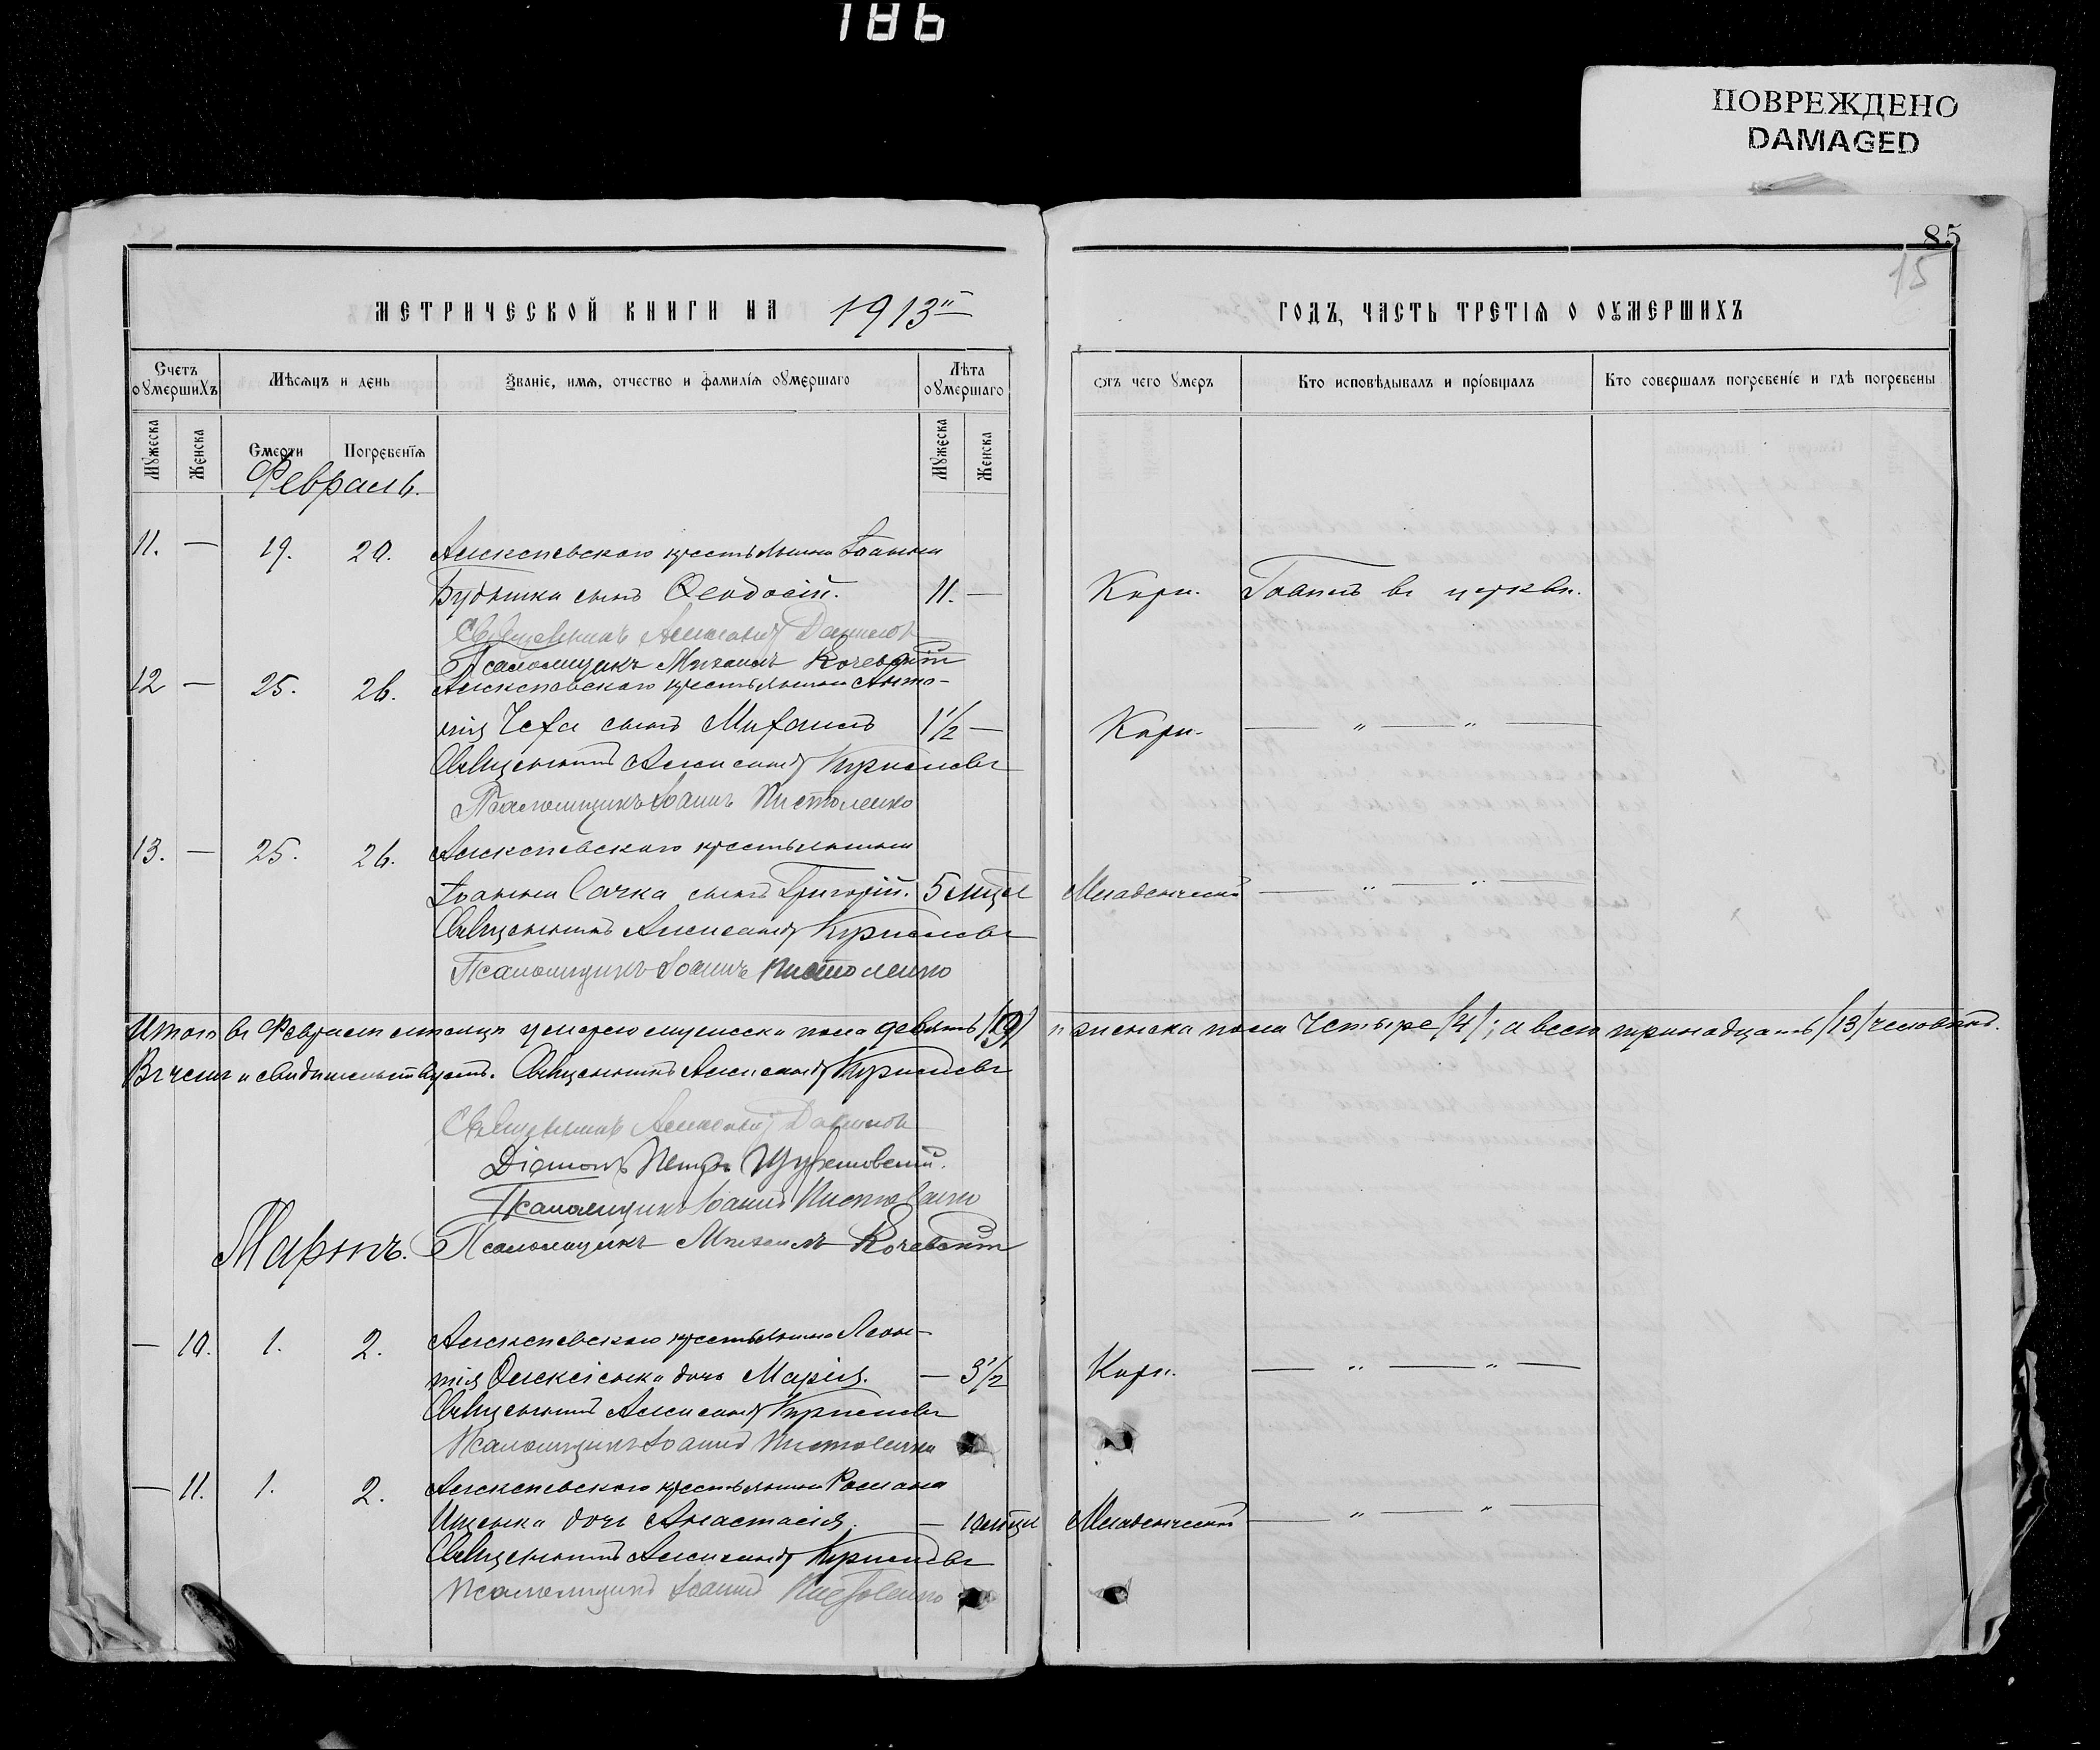 186
ПОВРЕЖДЕНО
DAMAGED
85
15
МЕТРИЧЕСКОЙ КНИГИ НА 1913й
ГОДЪ, ЧАСТЬ ТРЕТІЯ О ОУМЕРШИХЪ
Счетъ оумершихъ
Мѣсяцъ и день
Званіе, имя, отчество и фамилія оумершаго
Лѣта оумершаго
отъ чего умеръ
Кто исповѣдывалъ и пріобщалъ
Кто совершалъ погребеніе и гдѣ погребены
Мужеска
Женска
Смерти
Погребенія
Мужеска
Женска
Февраль.
11. — 19. 20. Алексѣевскаго крестьянина Іоанна
сынъ Ѳеодосій. 11. — Кори. въ церкви.
Священникъ Александръ
Псаломщикъ Михаилъ Кочевскій
12 — 25. 26. Алексѣевскаго крестьянина Анто-
нія сынъ Михаилъ 1 1/2 — Кори. — " — " —
Священникъ Александръ
Псаломщикъ Іоаннъ
13. — 25. 26. Алексѣевскаго крестьянина
Іоанна Сачка сынъ Григорій. 5 мцсе Младенческой — " — " —
Священникъ Александръ
Псаломщикъ Іоаннъ
Итого въ Февралѣ мѣсяцѣ умерло мужеска пола девять /9/ и женска пола четыре /4/; а всего тринадцать /13/ человѣкъ.
Въ чемъ и свидѣтельствуемъ. Священникъ Александръ
Священникъ Александръ
Діаконъ Петръ
Псаломщикъ Іоаннъ
Мартъ. Псаломщикъ Михаилъ Кочевскій
— 10. 1. 2. Алексѣевскаго крестьянина Леон-
тія дочь Марія. — 3 1/2 Кори. — " — " —
Священникъ Александръ
Псаломщикъ Іоаннъ
— 11. 1. 2. Алексѣевскаго крестьянина Романа
Ищенка дочь Анастасія. — 10 мцсе Младенческой — " — " —
Священникъ Александръ
Псаломщикъ Іоаннъ